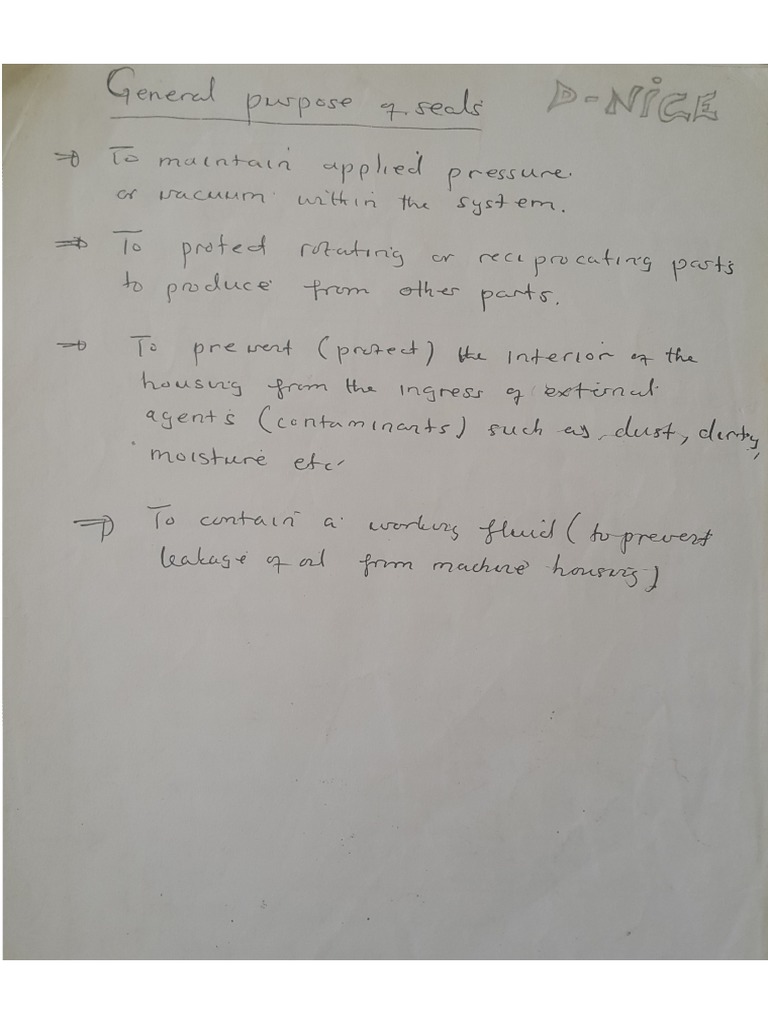 General purpose of seals
D-NiCE
⇒ To maintain applied pressure
or vacuum within the system.
⇒ To proted rotating or reciprocating parts
to produce from other parts.
→ To prevent (protect) the interior of the
housing from the ingress of external
agents (contaminants) such as, dust, dirty,
moisture etc
⇒ To contain a working fluid (to prevent
leakage of oil from machine housing)